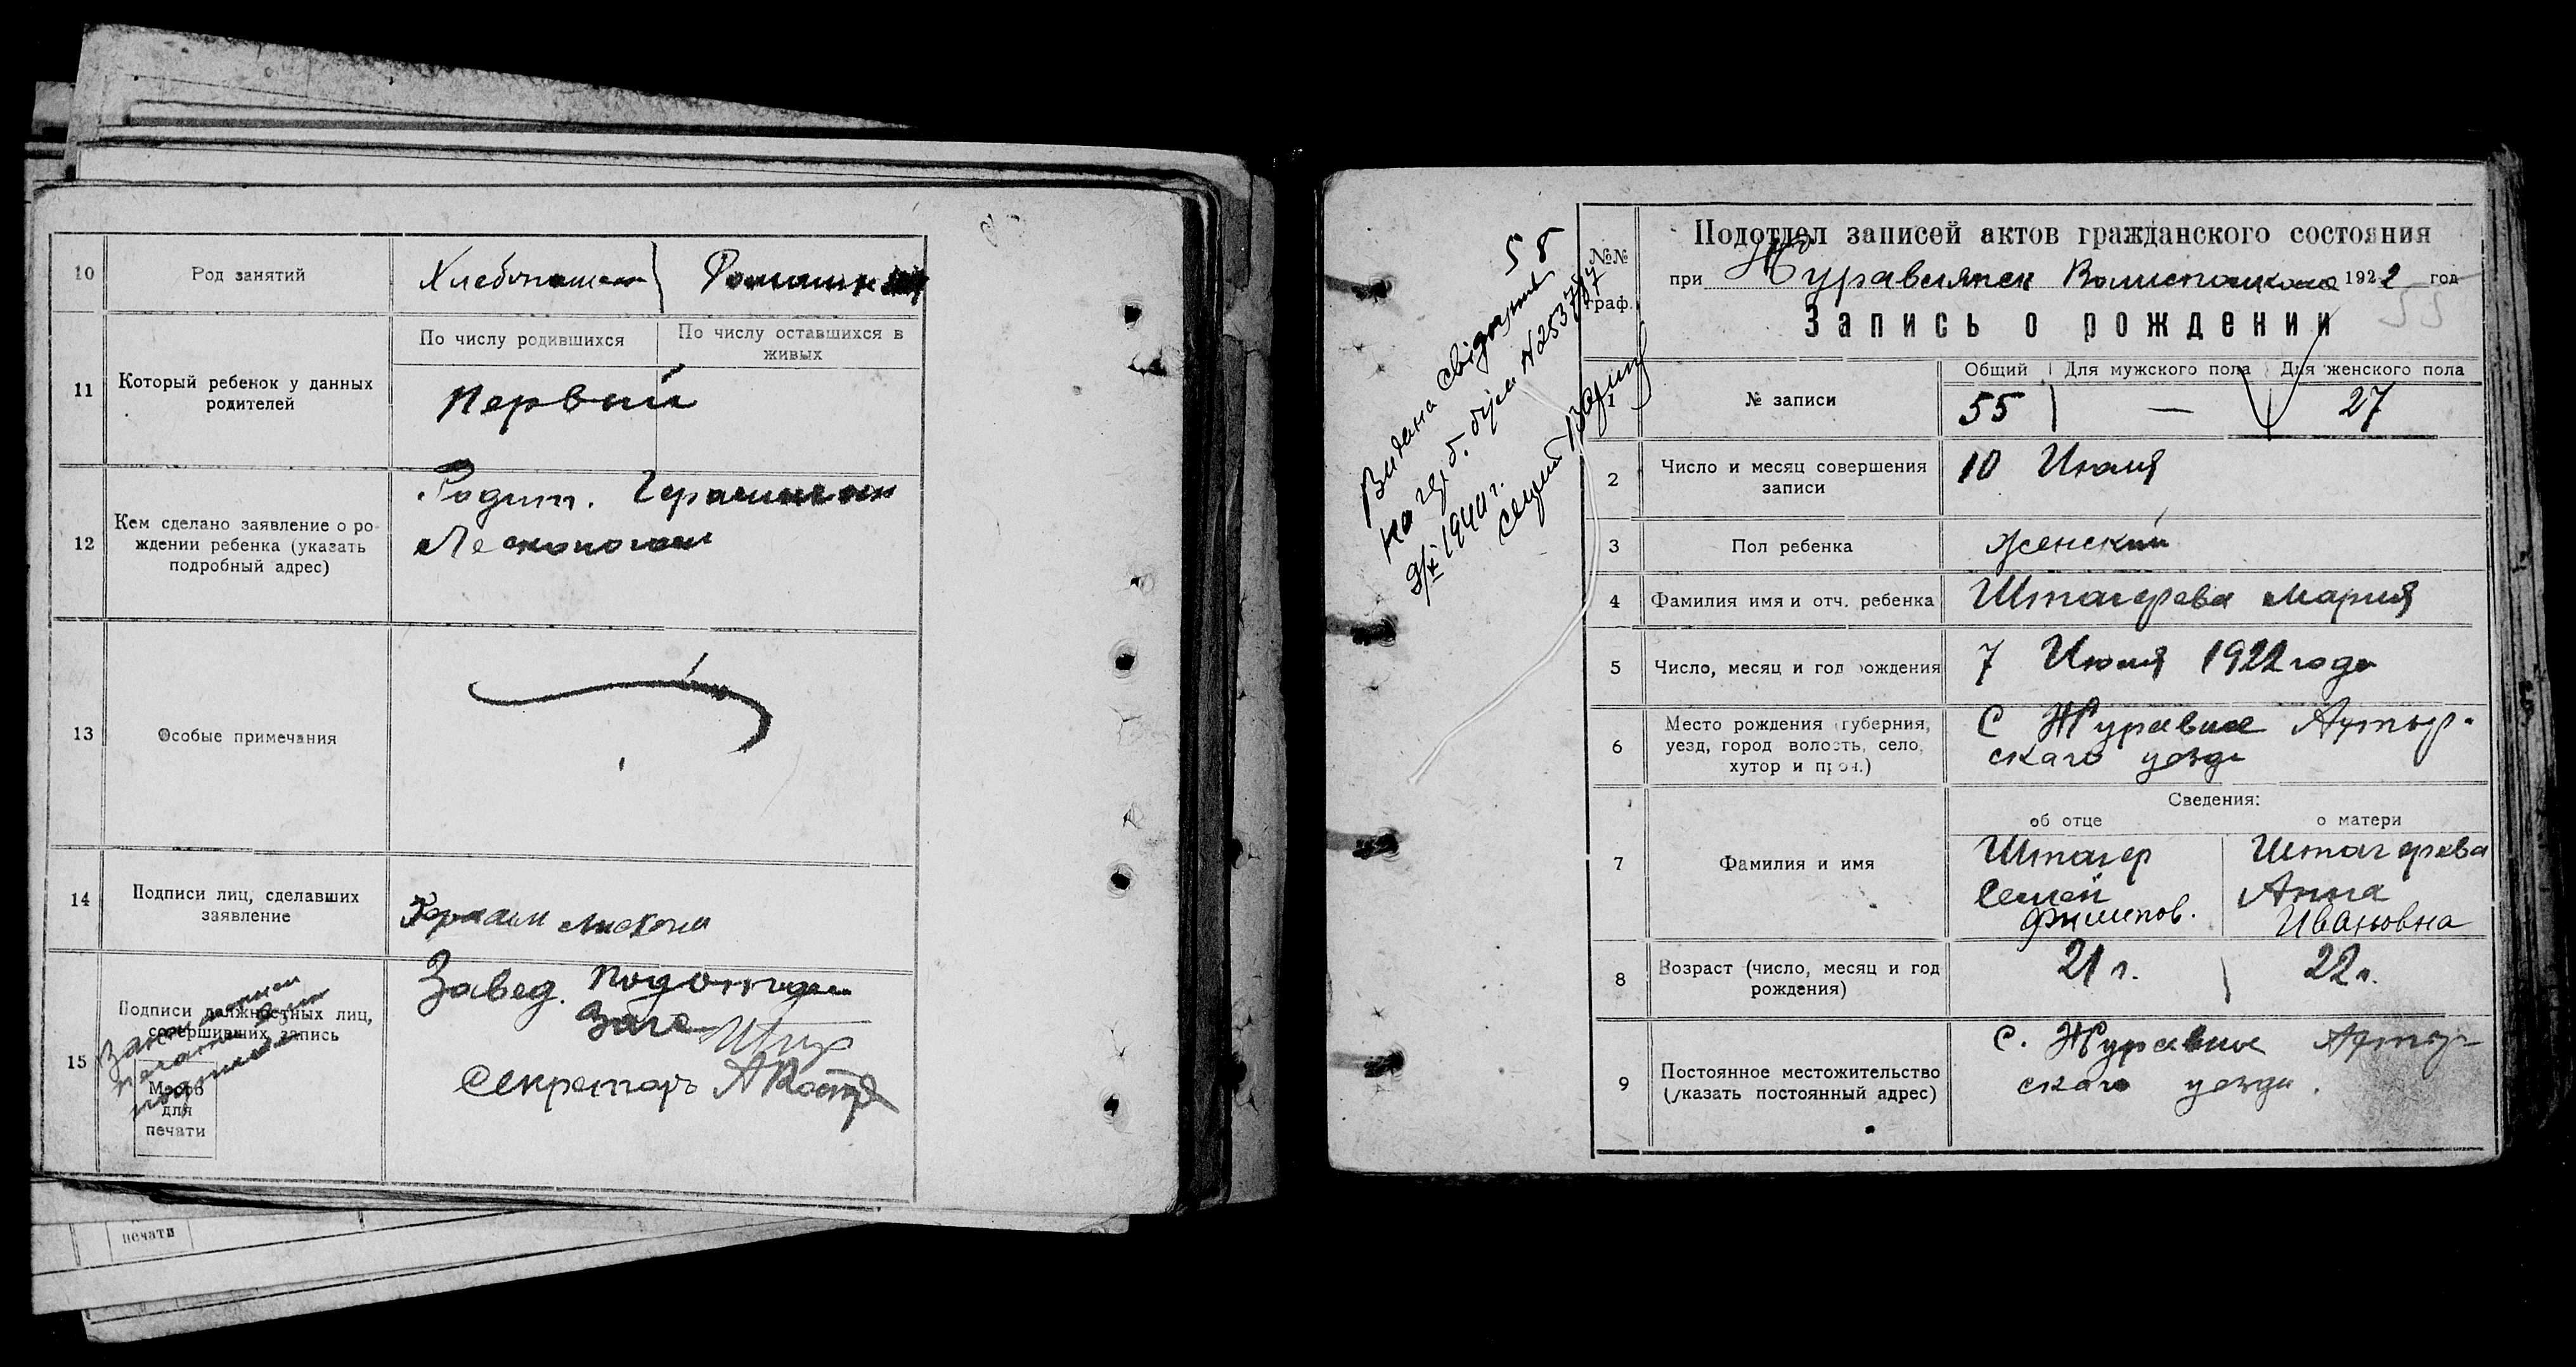 10
Род занятий
Хлебопашец
11
Который ребенок у данных
родителей
По числу родившихся
По числу оставшихся в
живых
Первый
12
Кем сделано заявление о ро-
ждении ребенка (указать
подробный адрес)
Родит.
13
Особые примечания
14
Подписи лиц, сделавших
заявление
15
Подписи должностных лиц,
совершивших запись
Место
для
печати
Завед. Подотдела
Загса
Секретарь
печати
58
Видана свідоцтво
1940 г.
№№
граф.
Подотдел записей актов гражданского состояния
при 1922 год
55
Запись о рождении
1
№ записи
Общий
Для мужского пола
Для женского пола
55
—
27
2
Число и месяц совершения
записи
10 Июля
3
Пол ребенка
женский
4
Фамилия имя и отч. ребенка
Штагерева Мария
5
Число, месяц и год рождения
7 Июля 1922 года
6
Место рождения (губерния,
уезд, город волость, село,
хутор и проч.)
С Журавное Ахтыр-
скаго уезда
Сведения:
об отце
о матери
7
Фамилия и имя
Штагер
Семен
Филипов.
Штагерева
Анна
Ивановна
8
Возраст (число, месяц и год
рождения)
21 г.
22 г.
9
Постоянное местожительство
(указать постоянный адрес)
С. Журавное Ахтыр-
скаго уезда.